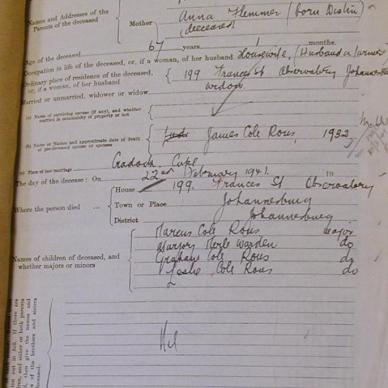 Names and Addresses of the
Parents of the deceased
Anna Flemmer (born Destin)
Mother
(deceased)
Age of the deceased 67 years 1 months.
Occupation in life of the deceased, or, if a woman, of her husband Housewife, (Husband a
Ordinary place of residence of the deceased,
or, if a woman, of her husband
199 Frances St Observatory Johannesburg
Married or unmarried, widower or widow widow
(b) Name or Names and approximate date of death
of pre-deceased spouse or spouses
James Cole Rous, 1932
(c) Place of her marriage Cradock, Cape
The day of the deceased: On 22nd February 1941.
House 199, Frances St Observatory
Where the person died Town or Place Johannesburg
District Johannesburg
Names of children of deceased, and
whether majors or minors
Marcus Cole Rous major
Marjory Merle Warden do
Grahame Cole Rous do
Leslie Cole Rous do
Nil